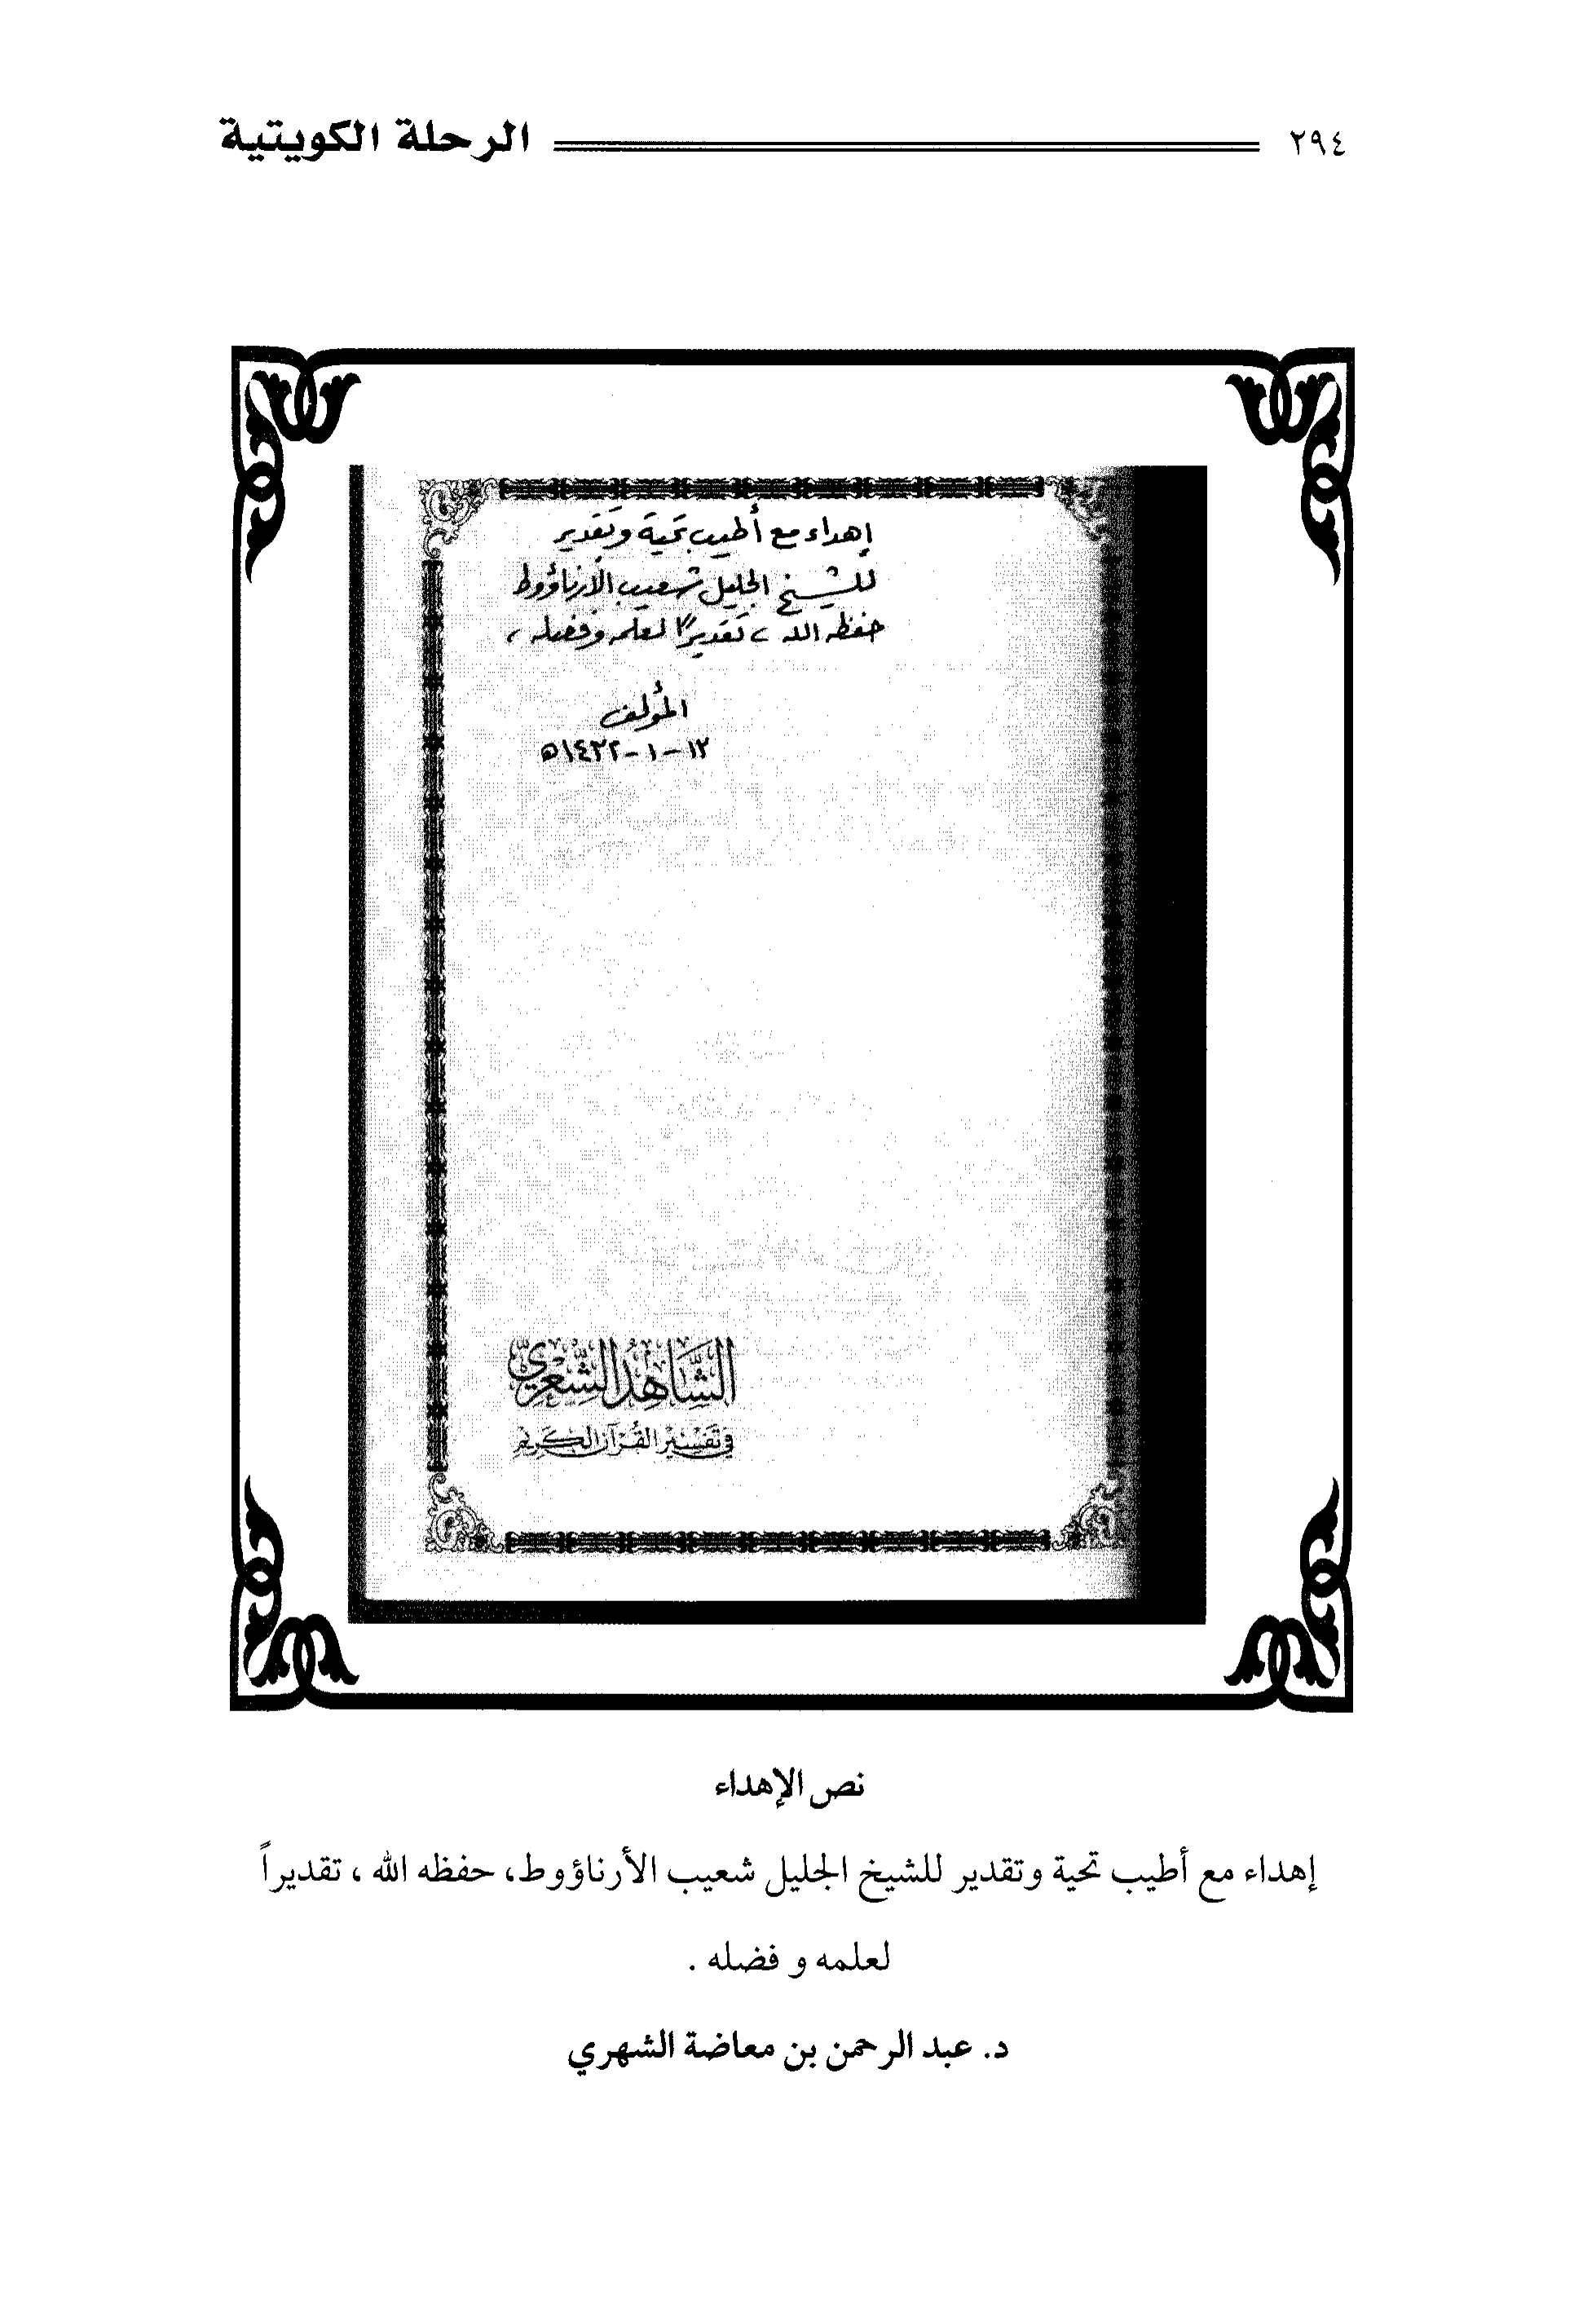 ٢٩٤ الرحلة الكويتية
إهداء مع أطيب تحية وتقدير
للشيخ الجليل شعيب الأرناؤوط
حفظه الله ، تقديرًا لعلمه وفضله ،
المؤلف
١٣-١-١٤٣٢ه
الشَّاهِدُ الشِّعْرِيُّ
في تَفْسِيْرِ القُرْآنِ الكَرِيْمِ
نص الإهداء
إهداء مع أطيب تحية وتقدير للشيخ الجليل شعيب الأرناؤوط، حفظه الله ، تقديراً
لعلمه و فضله .
د. عبد الرحمن بن معاضة الشهري